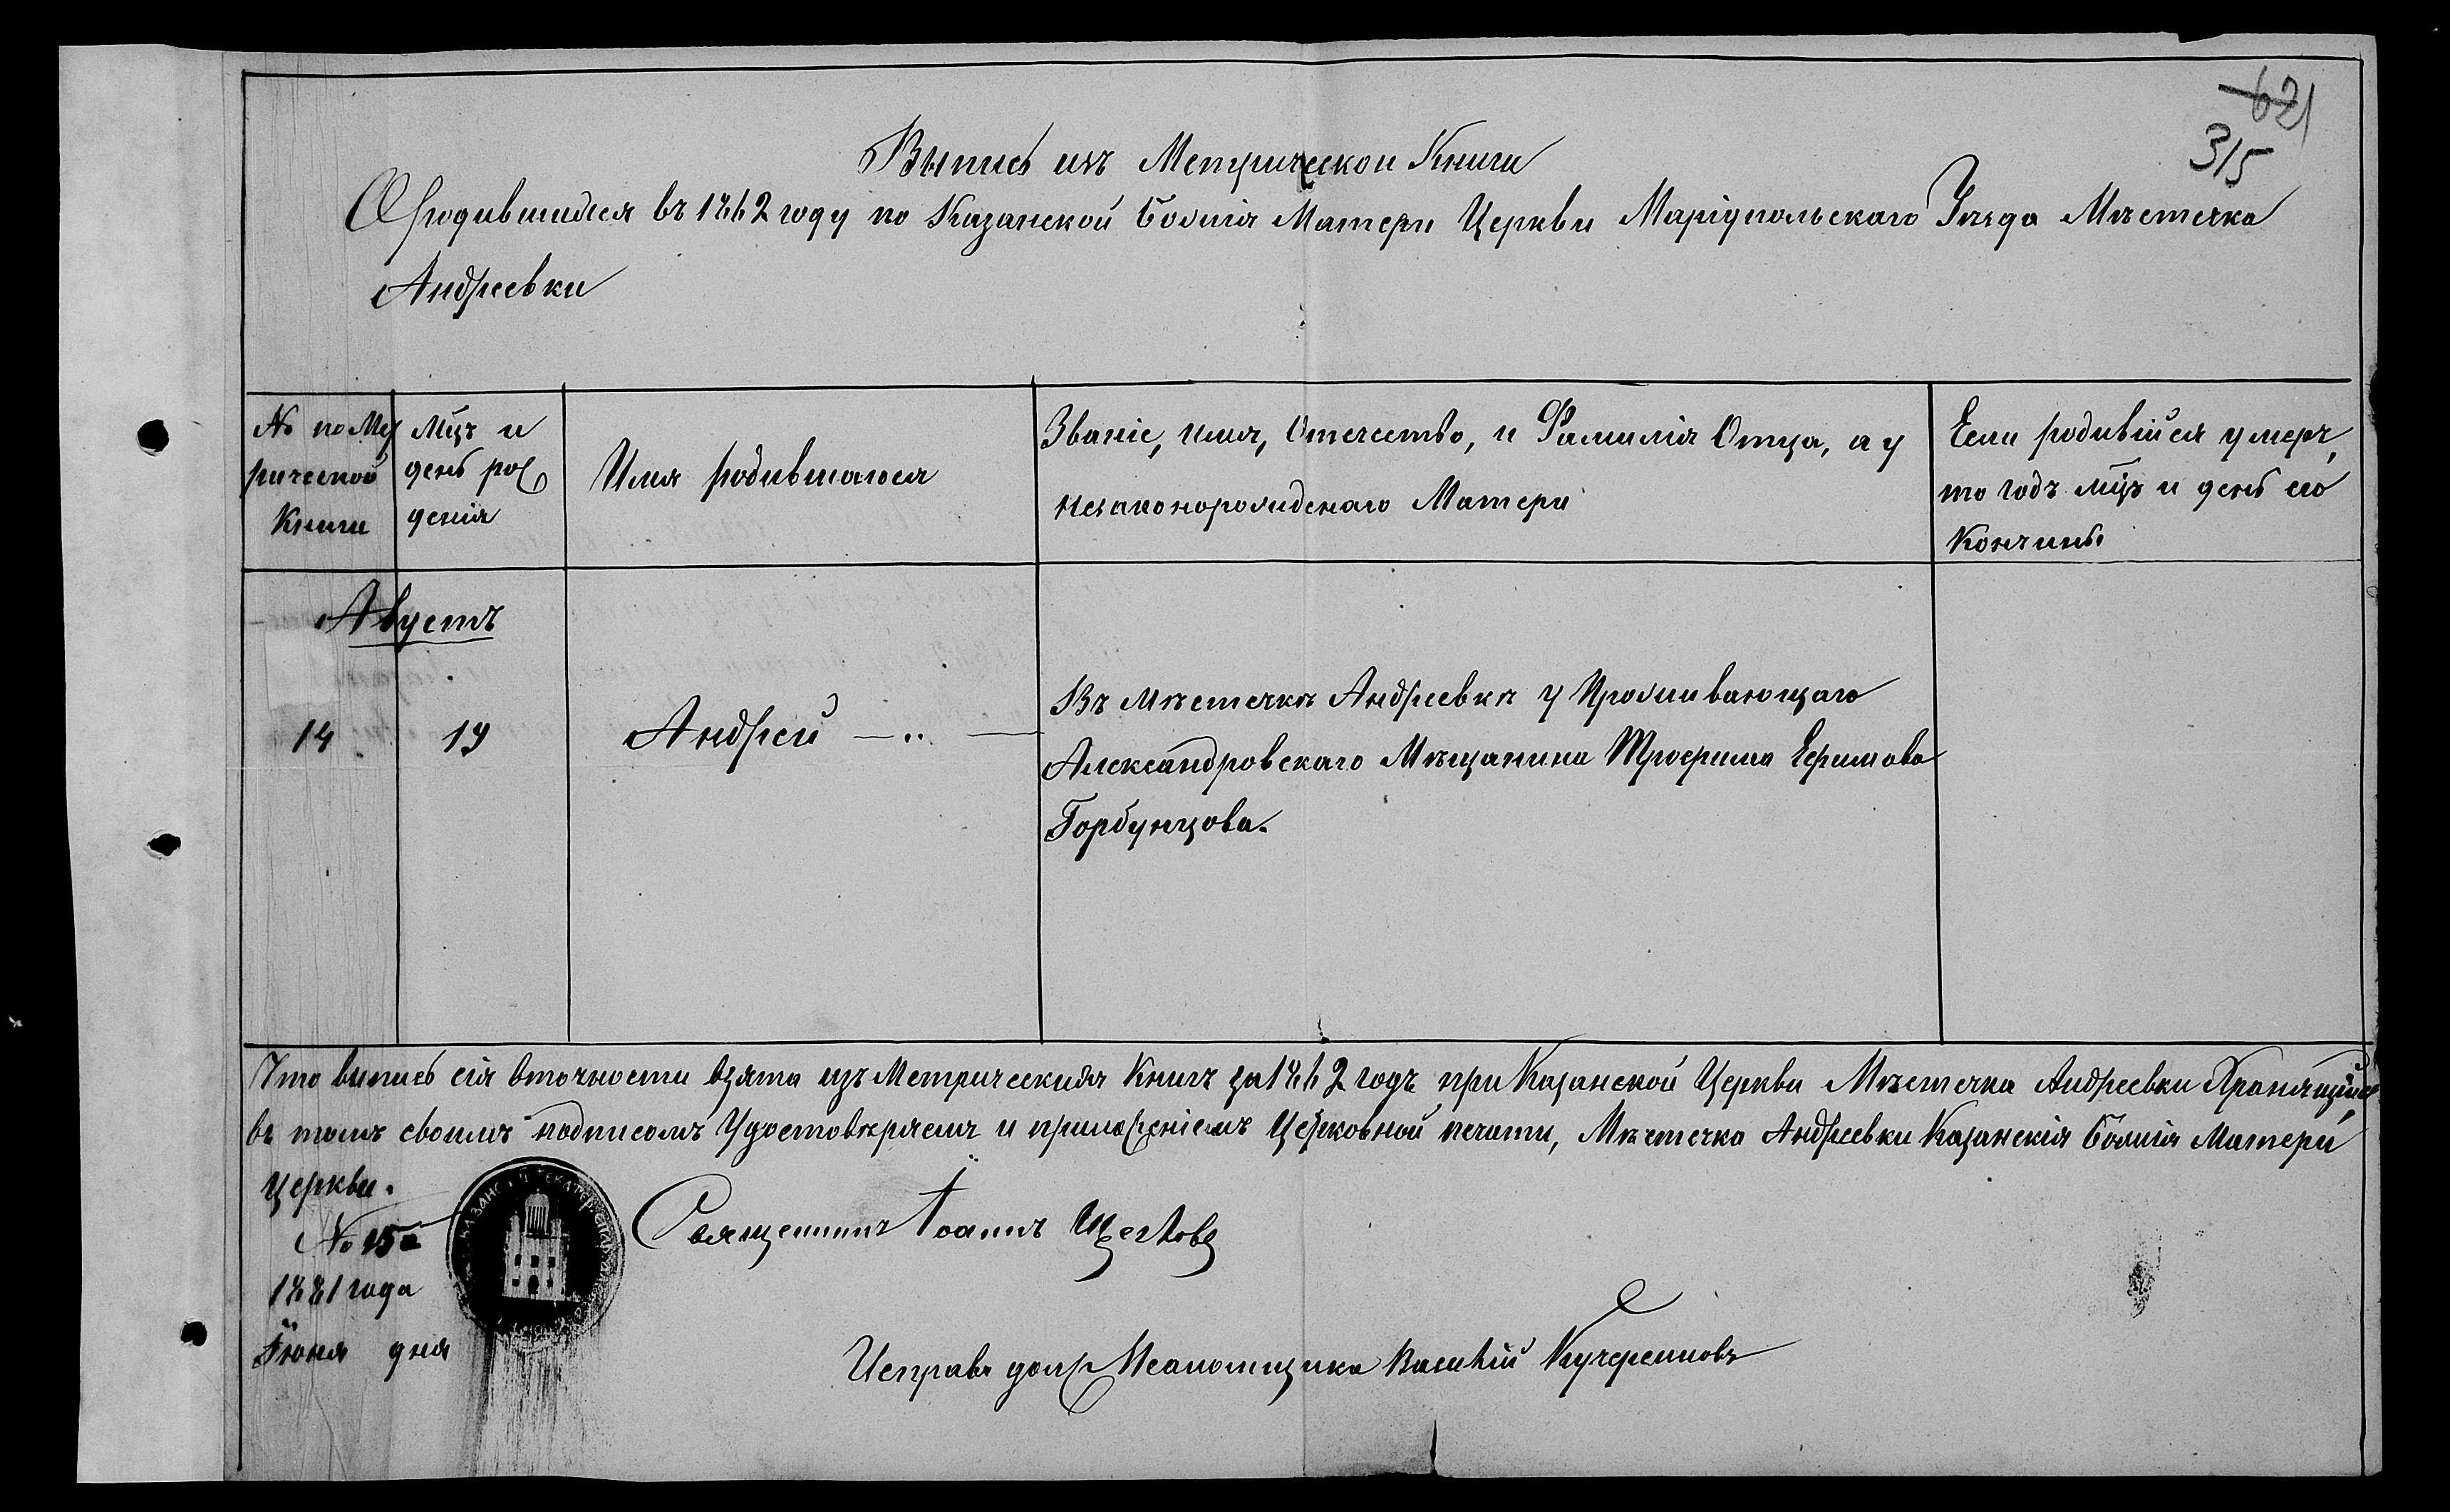 621
315
Выпись изъ Метрической Книги
О родившихся въ 1862 году по Казанской Божія Матери Церкви Маріупольскаго Уѣзда Мѣстечка
Андреевки
№ по Мет
рической
Книги
Мцъ и
день рож
денія
Имя родившагося
Званіе, имя, Отечество, и Фамилія Отца, а у
незаконорожденаго Матери
Если родившійся умеръ,
то годъ мцъ и день его
Кончины
Августъ
14
19
Андрей
Въ мѣстечкѣ Андреевкѣ у Проживающаго
Александровскаго Мѣщанина Трофима Ефимова
Горбунцова.
Что выпись сія вточности взята изъ Метрическихъ Книгъ за 1862 годъ при Казанской Церкви Мѣстечка Андреевки Хранящийся
въ томъ своимъ подписомъ Удостовѣряемъ и приложеніемъ Церковной печати, Мѣстечка Андреевки Казанскія Божія Матери
Церкви.
№ 15
1881 года
Іюня дня
Священникъ Іоаннъ Щегловъ
Исправл долж Псаломщика Василій Кучеренковъ